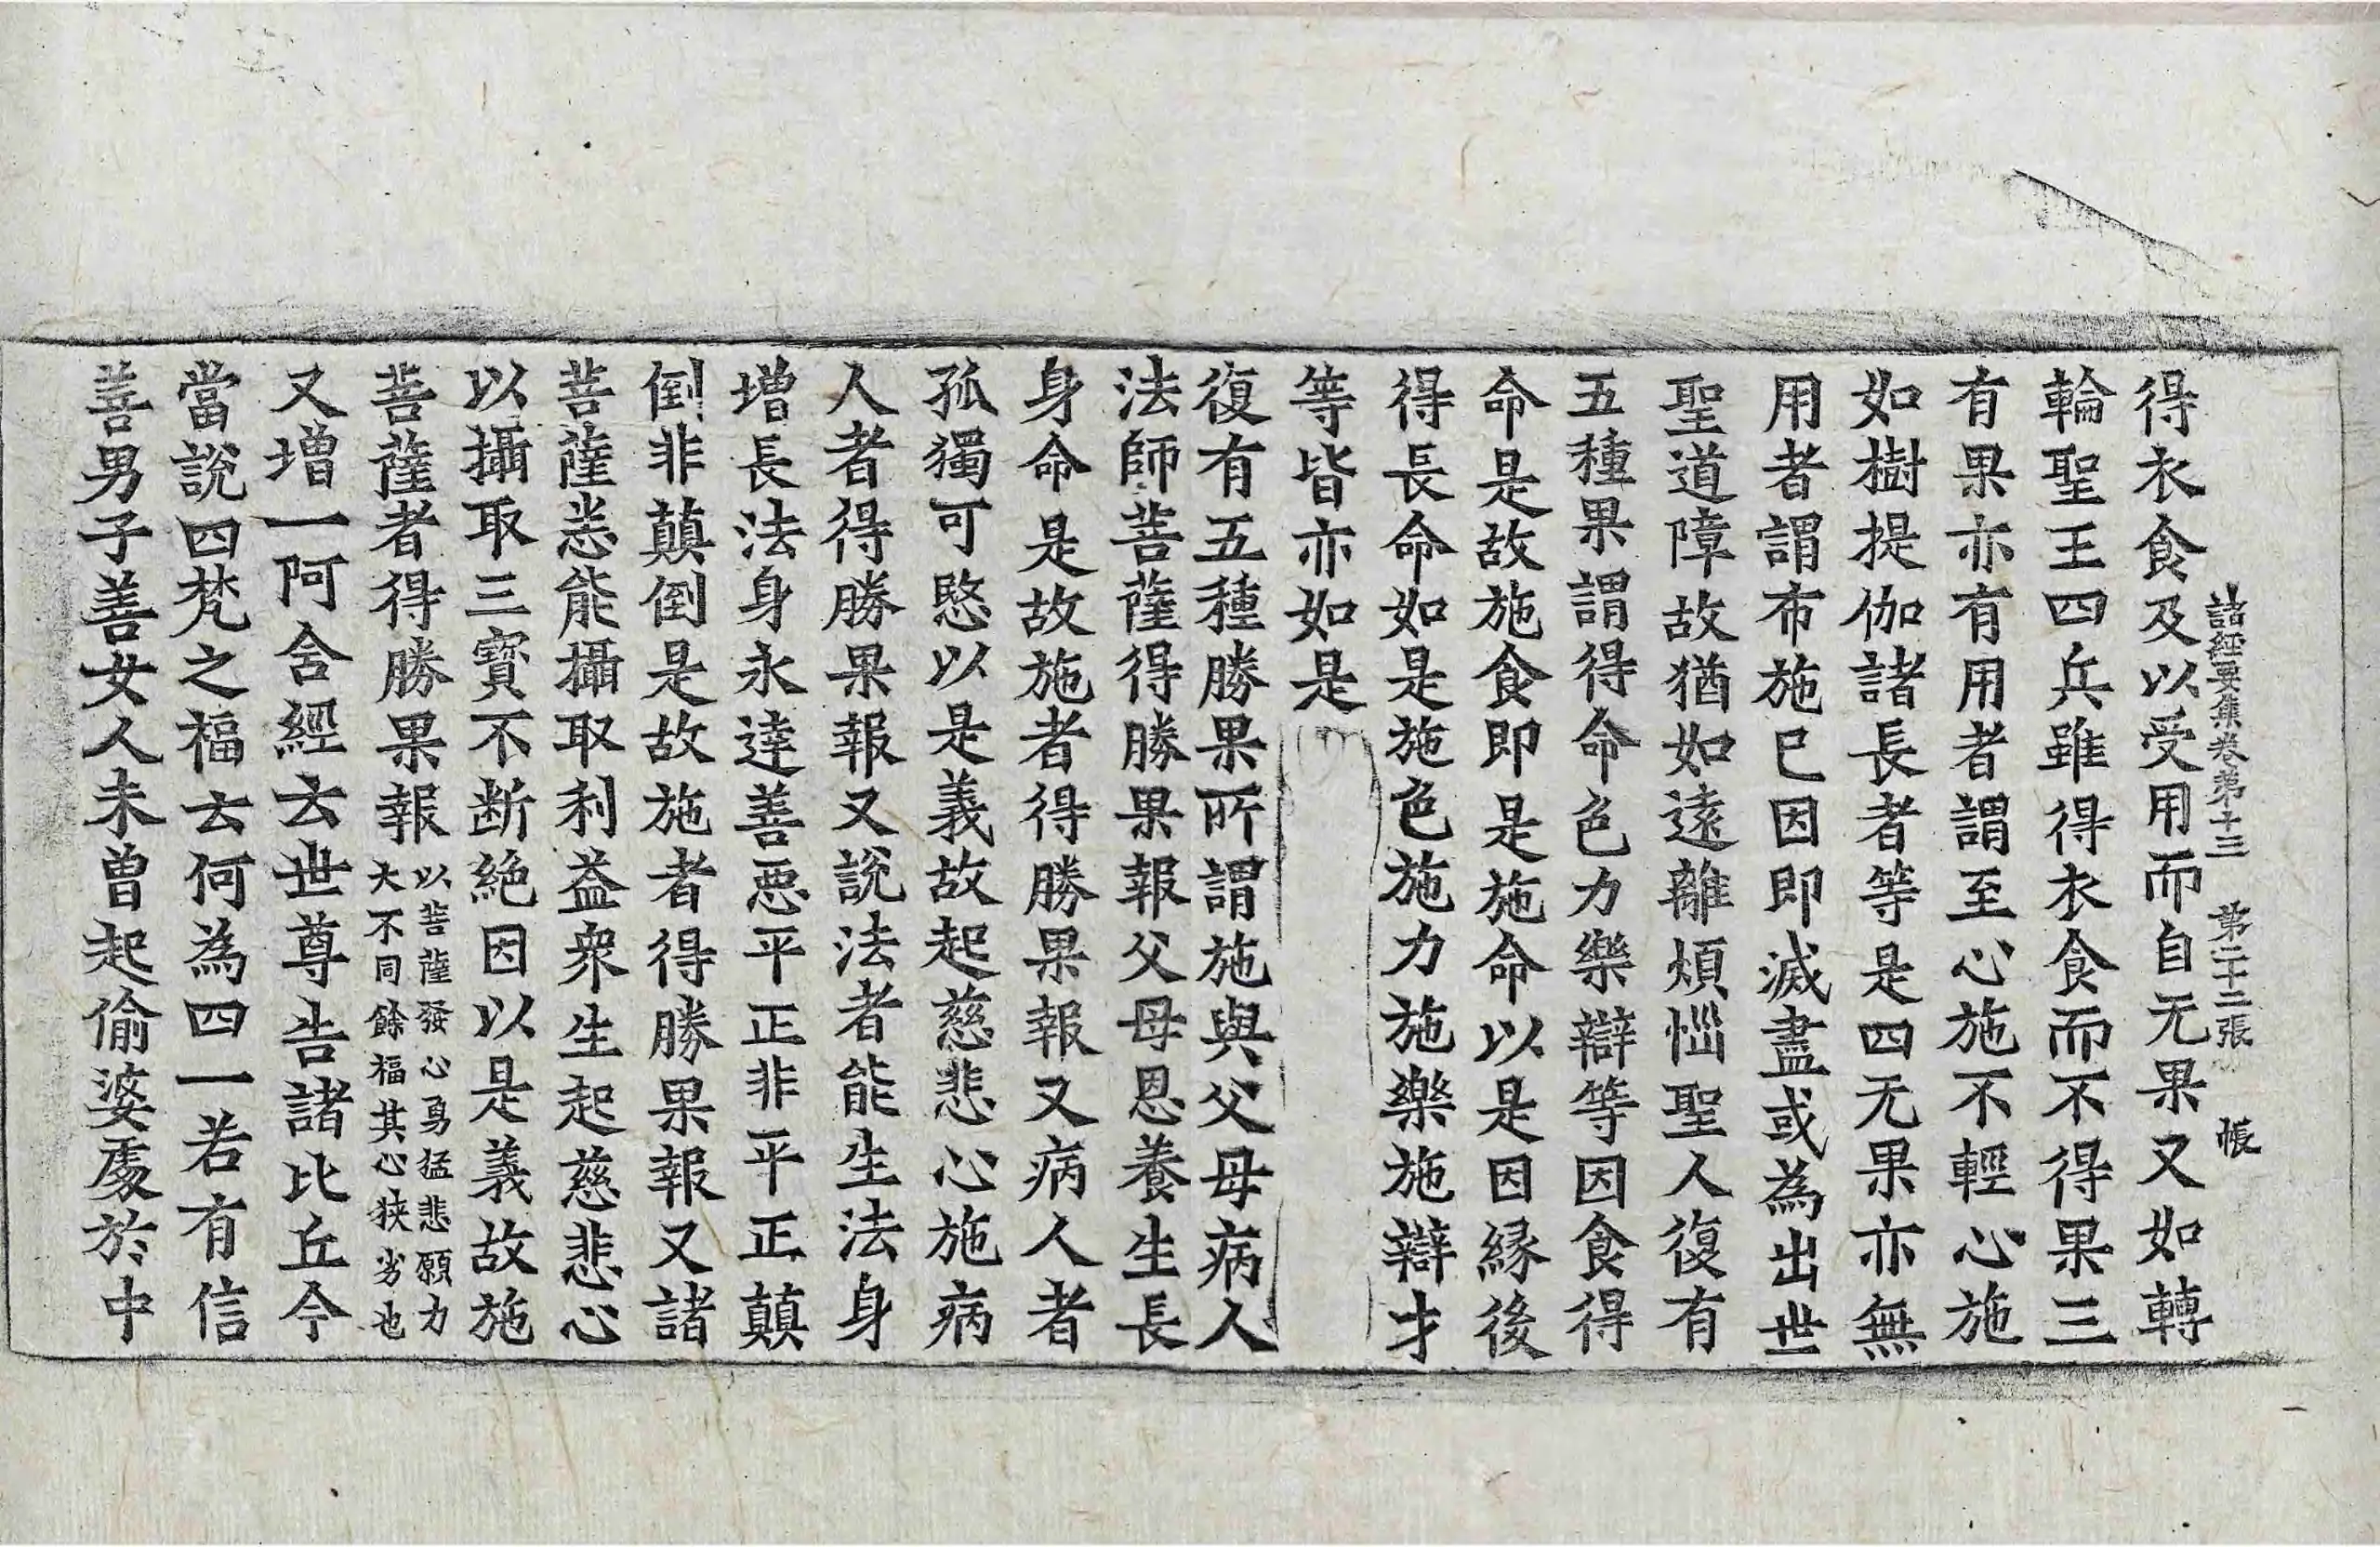 諸經要集卷第十三　第二十二張　帳
得衣食及以受用而自无果又如轉
輪聖王四兵雖得衣食而不得果三
有果亦有用者謂至心施不輕心施
如樹提伽諸長者等是四无果亦無
用者謂布施已因即滅盡或為出世
聖道障故猶如遠離煩惱聖人復有
五種果謂得命色力樂辯等因食得
命是故施食即是施命以是因緣後
得長命如是施色施力施樂施辯才
等皆亦如是
復有五種勝果所謂施與父母病人
法師菩薩得勝果報父母恩養生長
身命是故施者得勝果報又病人者
孤獨可愍以是義故起慈悲心施病
人者得勝果報又說法者能生法身
增長法身永達善惡平正非平正顛
倒非顛倒是故施者得勝果報又諸
菩薩悉能攝取利益衆生起慈悲心
以攝取三寶不断絕因以是義故施
菩薩者得勝果報以菩薩發心勇猛悲願力
大不同餘福其心狹劣也
又增一阿含經云世尊告諸比丘今
當說四梵之福云何為四一若有信
善男子善女人未曾起偷婆處於中